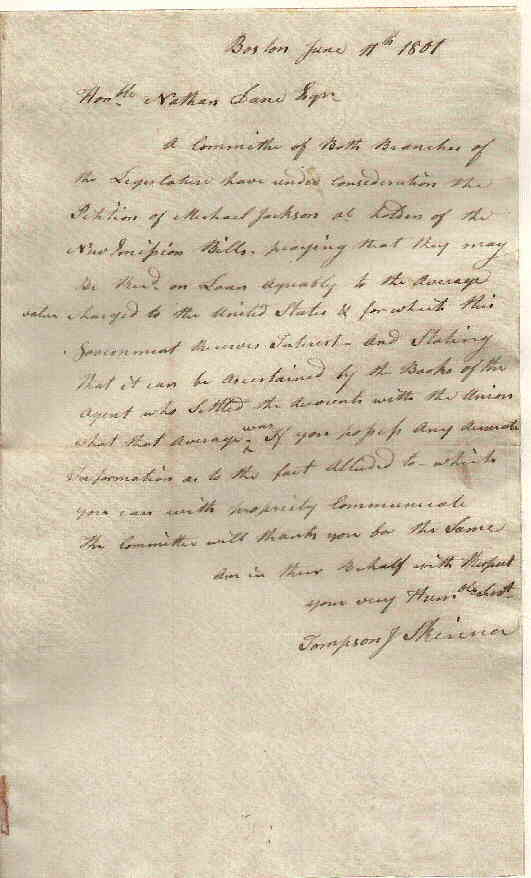 Boston June 11th 1801
Honble Nathan Dane Esqr
A Committe of Both Branches of
the Legislature have under Consideration the
Petition of Michael Jackson al holders of the
New Emission Bills, praying that they may
Be Recd. on Loan agreably to the average
value charged to the United States & for which this
Government Receives Interest - And Stating
that it can be ascertained by the Books of the
Agent who Settled the accounts with the Union
what that average was. If you possess any accurate
Information as to the fact alluded to - which
you can with propriety Communicate
the Committee will thank you for the Same
am in their Behalf with Respect
your very Humble Servt
Tompson J Skinner